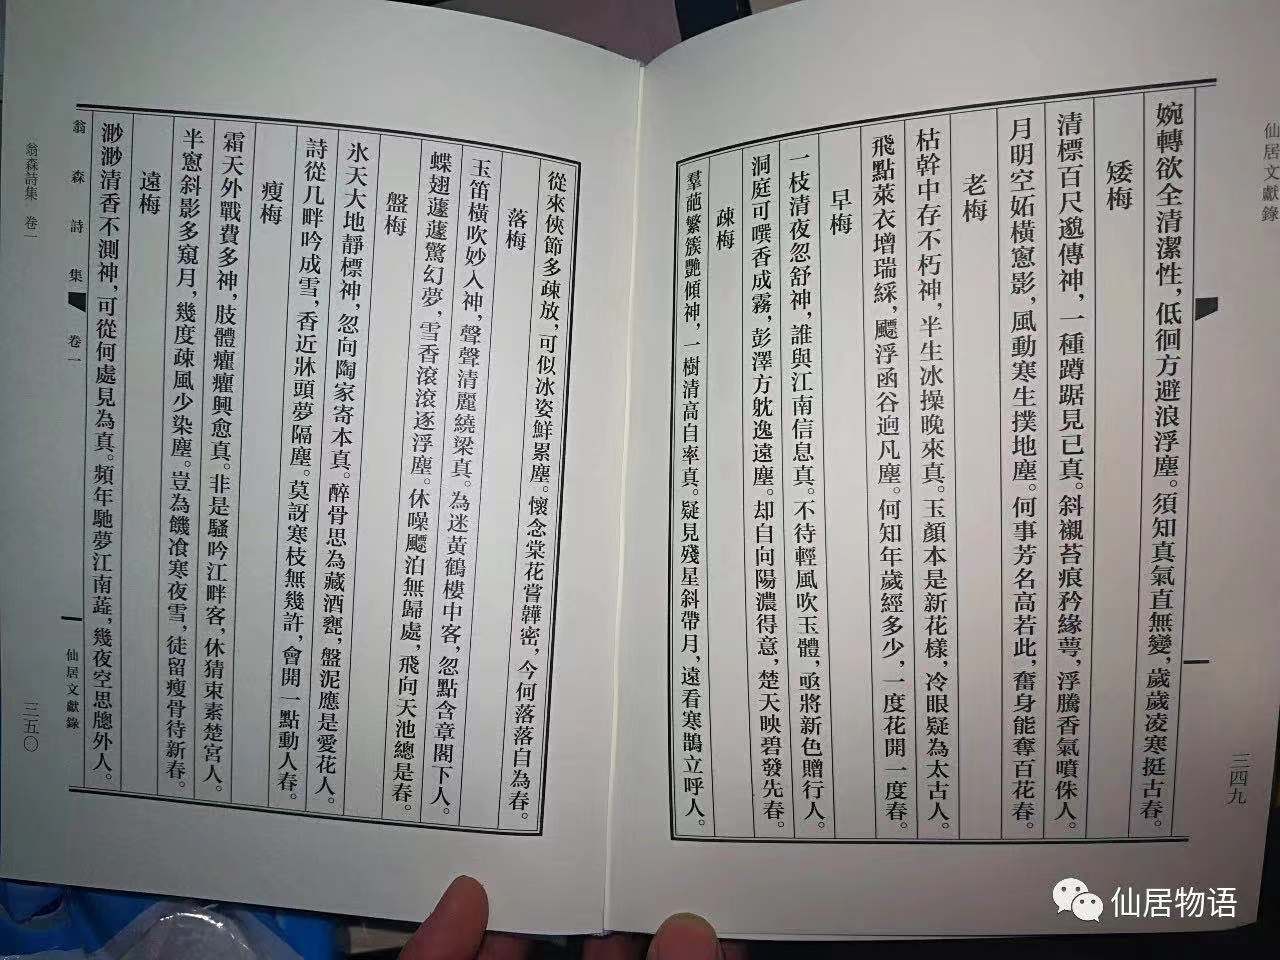 仙居文獻錄
三四九
婉轉欲全清潔性，低徊方避浪浮塵。須知真氣直無變，歲歲凌寒挺古春。
矮梅
清標百尺邈傳神，一種蹲踞見已真。斜襯苔痕矜緣萼，浮騰香氣噴侏人。
月明空妬橫窻影，風動寒生撲地塵。何事芳名高若此，奮身能奪百花春。
老梅
枯幹中存不朽神，半生冰操晚來真。玉顏本是新花樣，冷眼疑為太古人。
飛點萊衣增瑞綵，飃浮函谷迥凡塵。何知年歲經多少，一度花開一度春。
早梅
一枝清夜忽舒神，誰與江南信息真。不待輕風吹玉體，亟將新色贈行人。
洞庭可噀香成霧，彭澤方躭逸遠塵。却自向陽濃得意，楚天映碧發先春。
疎梅
羣葩繁簇艷傾神，一樹清高自率真。疑見殘星斜帶月，遠看寒鵲立呼人。
從來俠節多疎放，可似冰姿鮮累塵。懷念棠花嘗韡密，今何落落自為春。
落梅
玉笛橫吹妙入神，聲聲清麗繞梁真。為迷黃鶴樓中客，忽點含章閣下人。
蝶翅蘧蘧驚幻夢，雪香滾滾逐浮塵。休噪飃泊無歸處，飛向天池總是春。
盤梅
氷天大地靜標神，忽向陶家寄本真。醉骨思為藏酒甕，盤泥應是愛花人。
詩從几畔吟成雪，香近牀頭夢隔塵。莫訝寒枝無幾許，會開一點動人春。
瘦梅
霜天外戰費多神，肢體癯癯興愈真。非是騷吟江畔客，休猜束素楚宮人。
半窻斜影多窺月，幾度疎風少染塵。豈為饑飡寒夜雪，徒留瘦骨待新春。
遠梅
渺渺清香不測神，可從何處見為真。頻年馳夢江南蕋，幾夜空思牕外人。
翁森詩集 卷一
仙居文獻錄
翁森詩集 卷一
三五〇
仙居物语